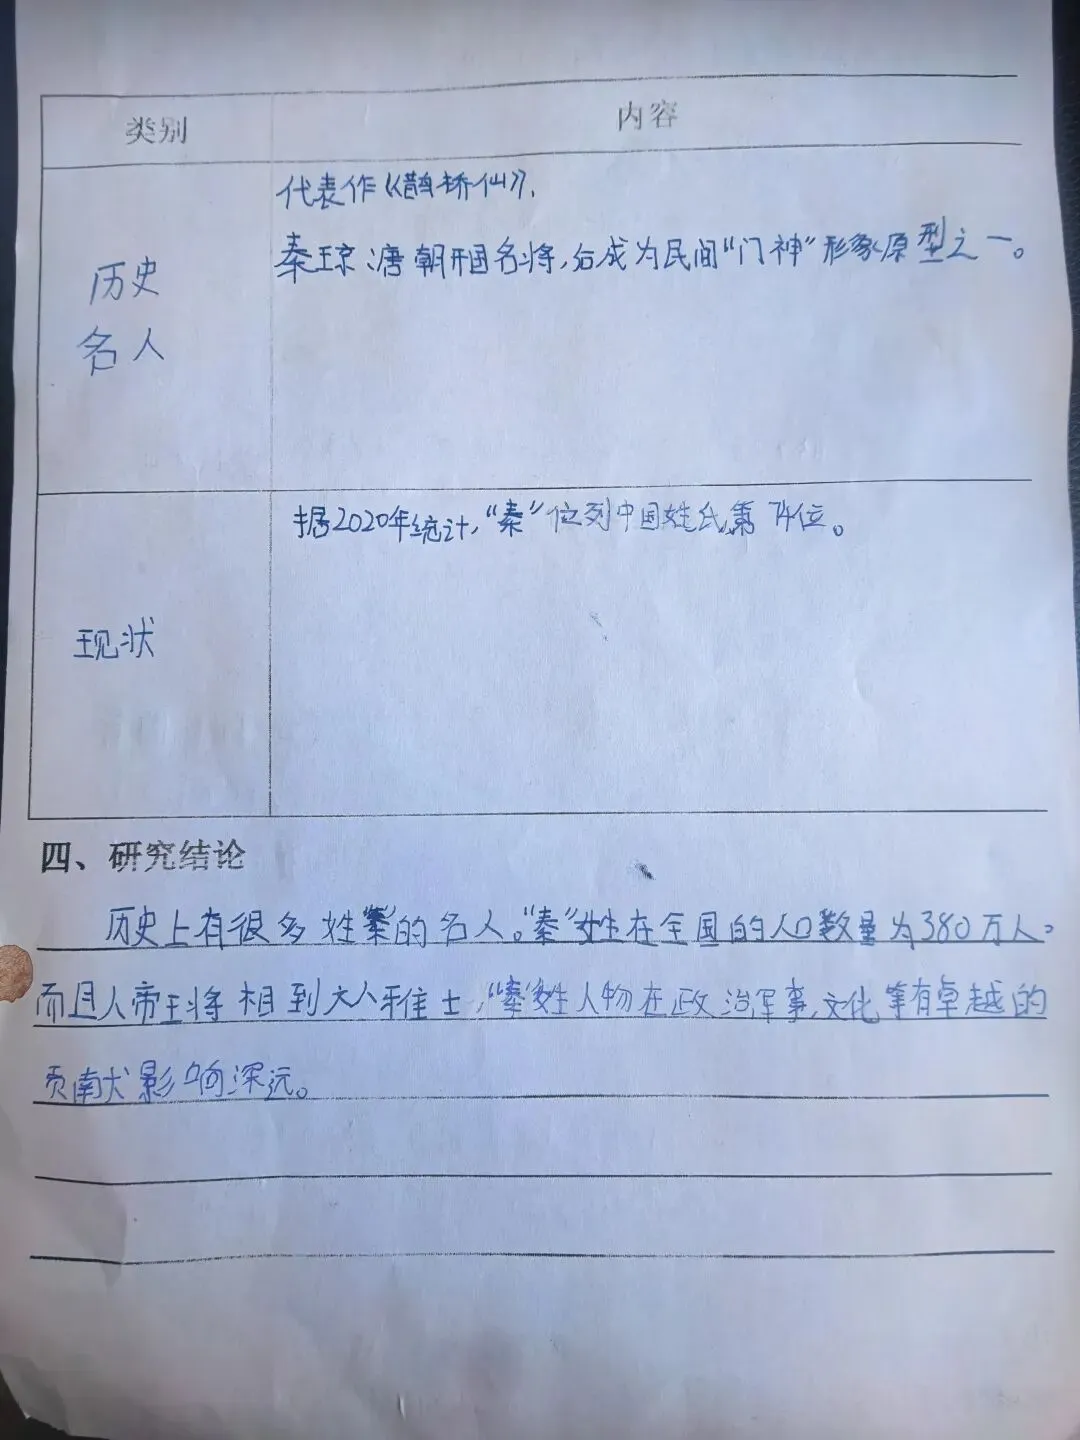 类别 内容
代表作《鹊桥仙》.
秦琼:唐朝开国名将,后成为民间"门神"形象原型之一。
历史
名人
据2020年统计,"秦"位列中国姓氏第74位。
现状
四、研究结论
历史上有很多姓"秦"的名人。"秦"姓在全国的人口数量为380万人。
而且从帝王将相到文人雅士,"秦"姓人物在政治军事,文化等有卓越的
贡献影响深远。